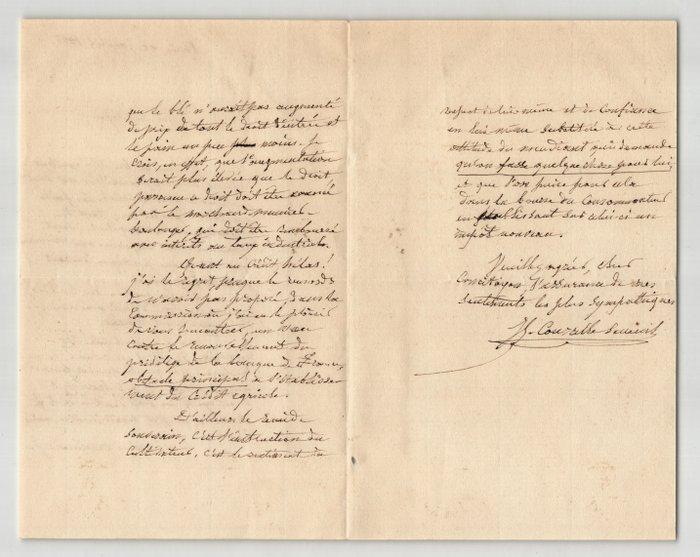 que le blé n'aurait pas augmenté
de prix de tout le droit d'entrée et
le pain un peu moins. Je
crois, en effet, que l'augmentation
serait plus élevée que le droit
parceque ce droit doit être
par le marchand-meunier-
boulanger, qui doit être remboursé
avec intérêts au taux industriel.
Quant au Crédit hélas!
j'ai le regret, presque le remords
de n'avoir pas proposé, dans la
Commission où j'ai eu le plaisir
de vous rencontrer, un vœu
contre le renouvellement du
privilège de la banque de France,
obstacle principal à l'établisse-
ment du Crédit agricole.
D'ailleurs le remède
souverain, c'est l'instruction du
cultivateur, c'est le sentiment du
respect de lui même et de confiance
en lui même substitué à cette
attitude du mendiant qui demande
qu'on fasse quelque chose pour lui,
et que l'on puise pour cela
dans la bourse du consommateur
en établissant sur celui-ci un
impôt nouveau.
Veuillez agréer, cher
Concitoyen, l'assurance de mes
sentiments les plus sympathiques
Courcelle Seneuil